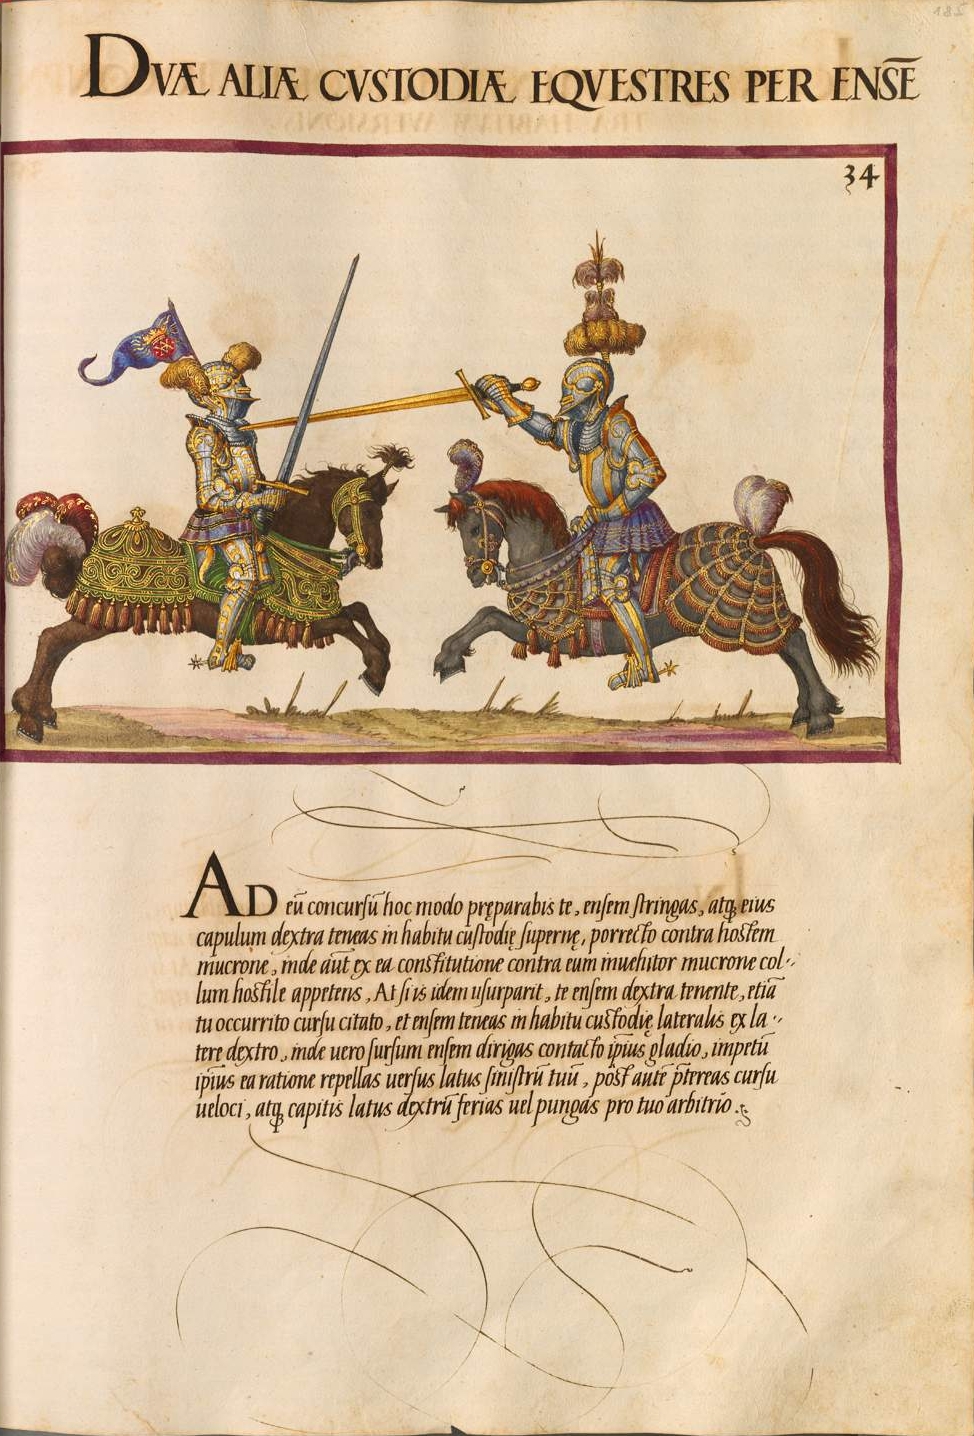 DVÆ ALIÆ CVSTODIÆ EQVESTRES PER ENSE̅
34
AD eū concursū hoc modo pręparabis te, ensem stringas, atq; eius
capulum dextra teneas in habitu custodię supernę, porrecto contra hostem
mucrone, inde aut ex ea constitutione contra eum inuehitor mucrone col-
lum hostile appetens, At si is idem usurparit, te ensem dextra tenente, etiā
tu occurrito cursu citato, et ensem teneas in habitu custodię lateralis ex la-
tere dextro, inde uero sursum ensem dirigas contacto ipsius gladio, impetū
ipsius ea ratione repellas uersus latus sinistrū tuū, post aute p̄tereas cursu
ueloci, atq; capitis latus dextrū ferias uel pungas pro tuo arbitrio.